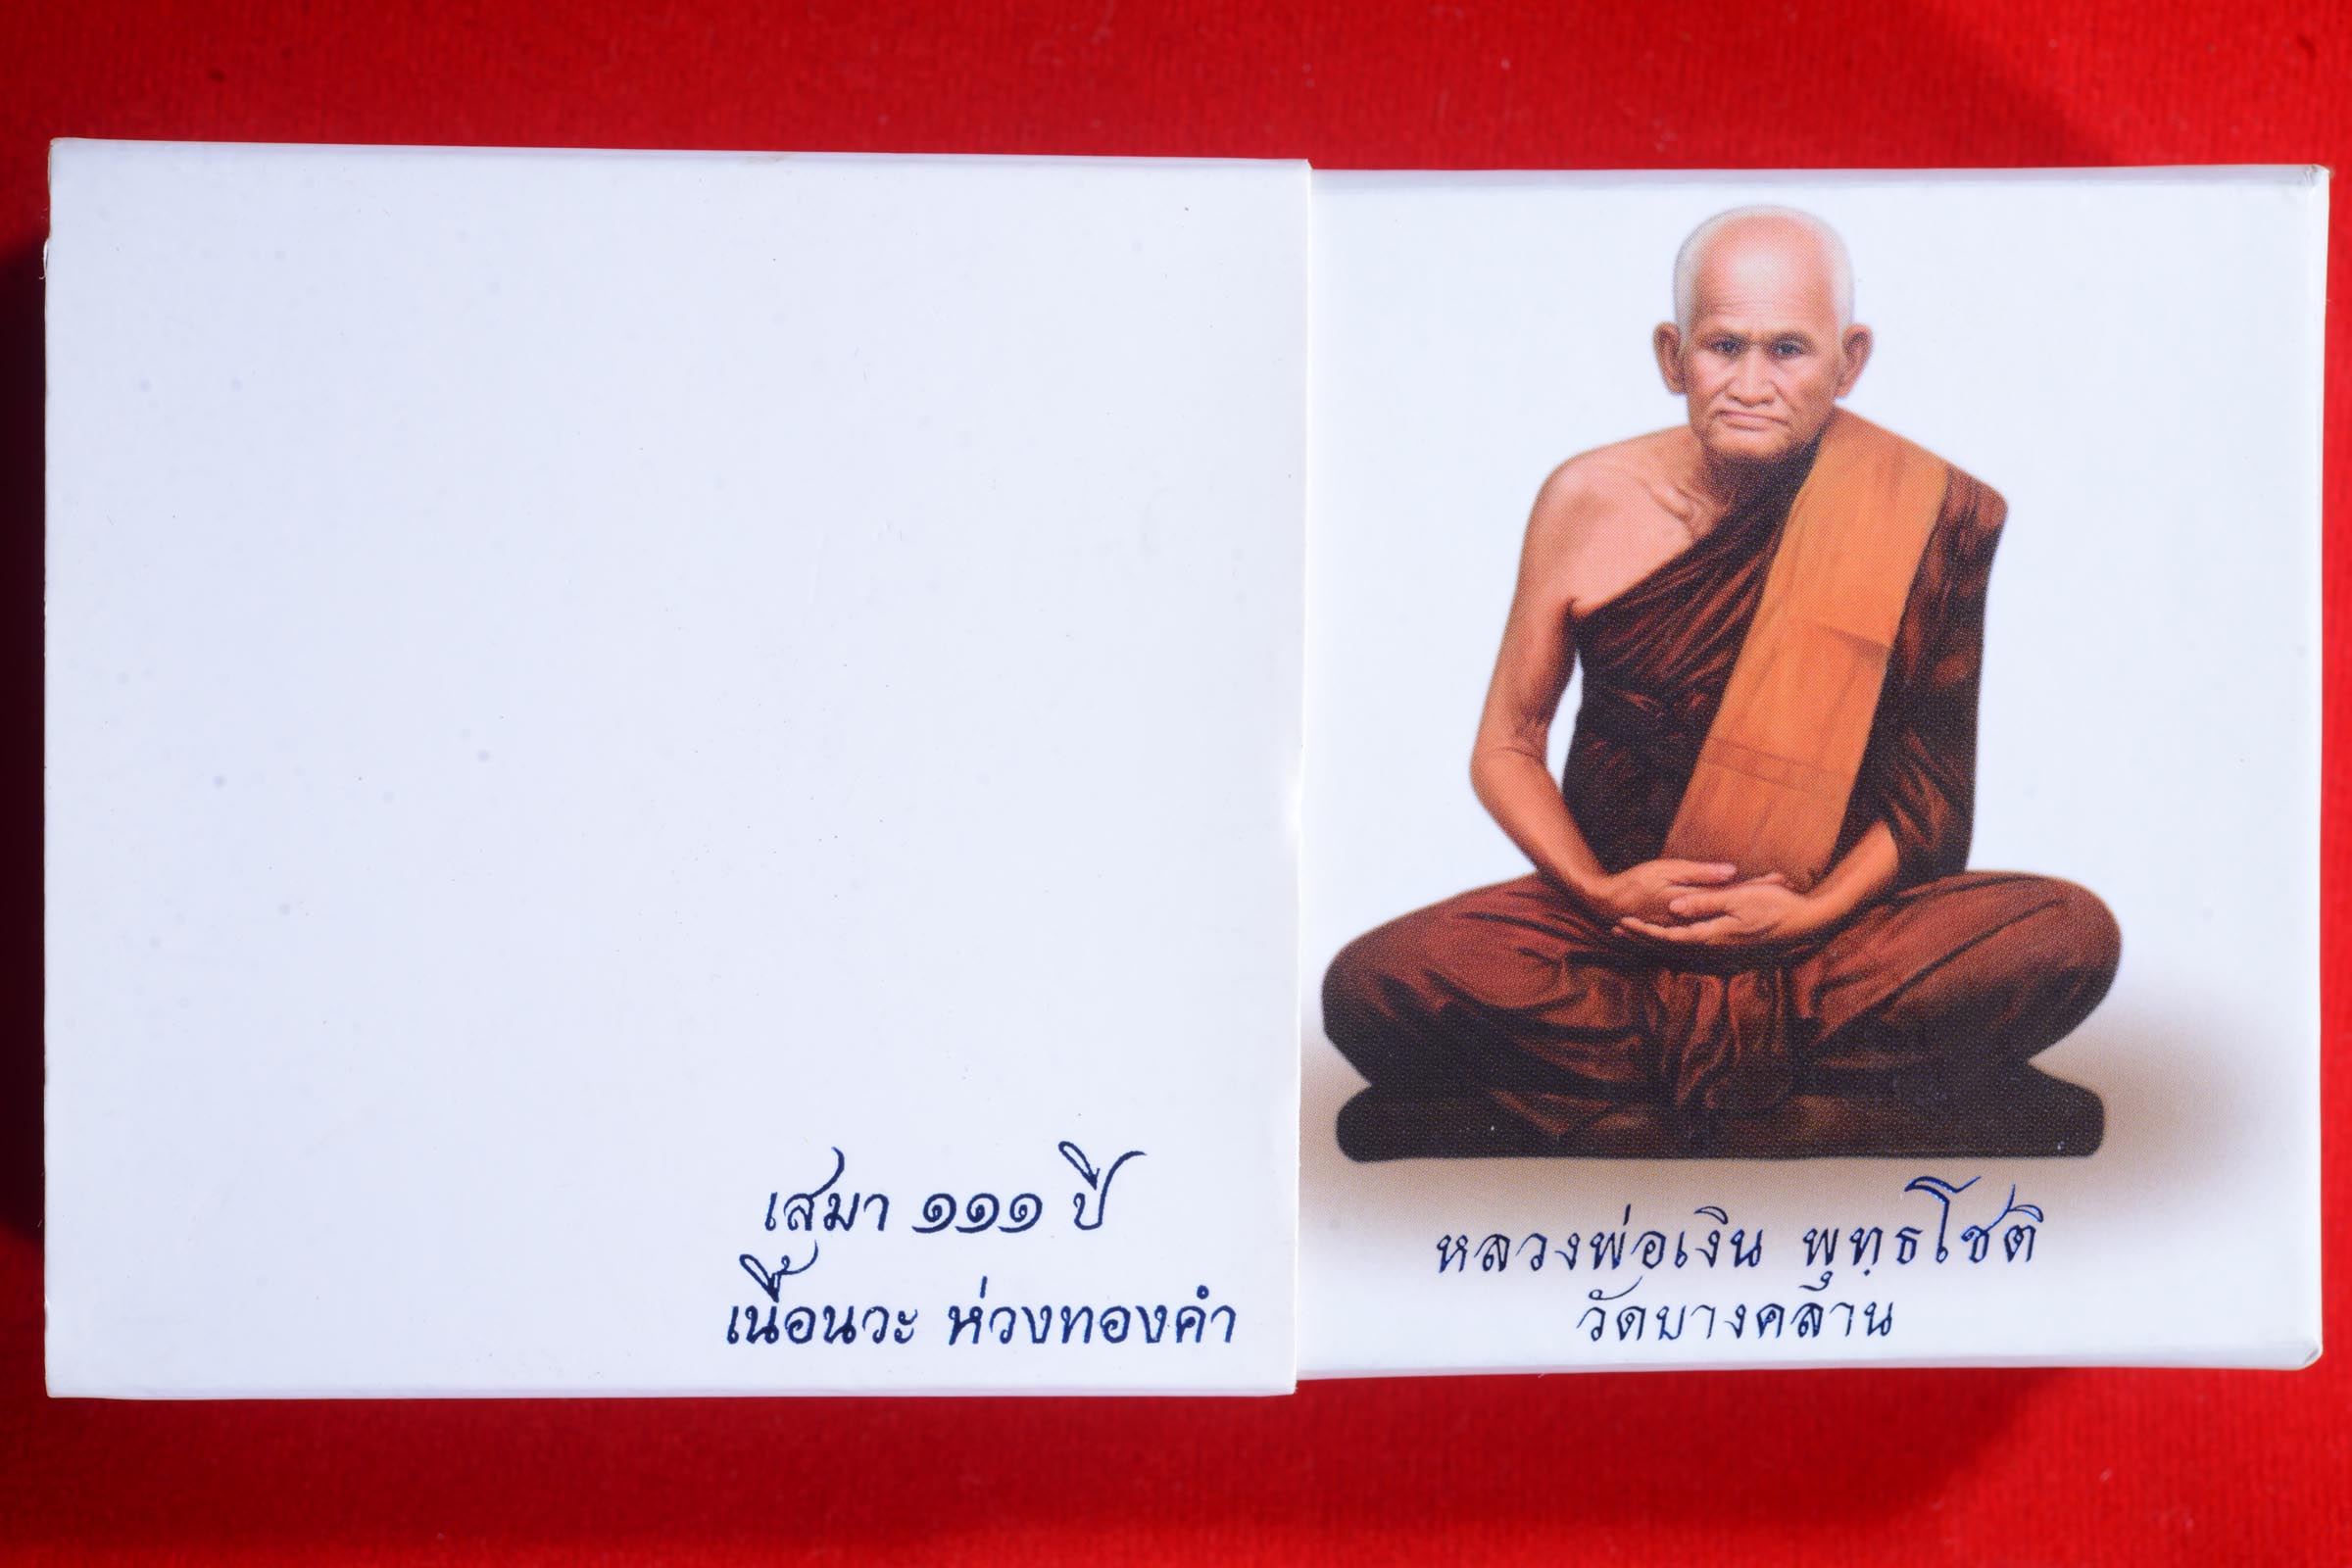 เสมา ๑๑๑ ปี
เนื้อนวะ ห่วงทองคำ
หลวงพ่อเงิน พุทฺธโชติ
วัดบางคลาน